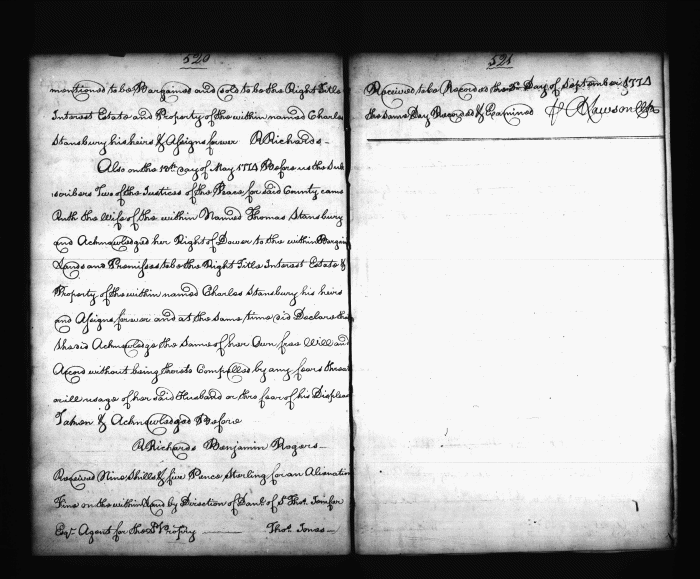 520
mentioned to be Bargained and sold to be the Right Title
Interest Estate and Property of the within named Charles
Stansbury his heirs & Assigns forever RRichards
Also on the 18th day of May 1774 Before us the Sub
scribers Two of the Justices of the Peace for said County came
Ruth the Wife of the within Named Thomas Stansbury
and Acknowledged her Right of Dower to the within Bargain
Lands and Premisses to be the Right Title Interest Estate &
Property of the within named Charles Stansbury his heirs
and Assigns forever and at the same time did Declare tha
She did Acknowledge the Same of her Own free Will and
Acord without being thereto Compelled by any fears threat
or ill usage of her said Husband or the fear of his Displea
Taken & Acknowledged Before
RRichards Benjamin Rogers
Received Nine Shills & five Pence Sterling for an Alienation
Fine on the within Land by Direction of Danl. of St. Thos. Jenifer
Esqr. Agent for the Propty Thos. Jones
521
Received to be Recorded the Day of September 1774
the Same Day Recorded & Examined Lawson Clk